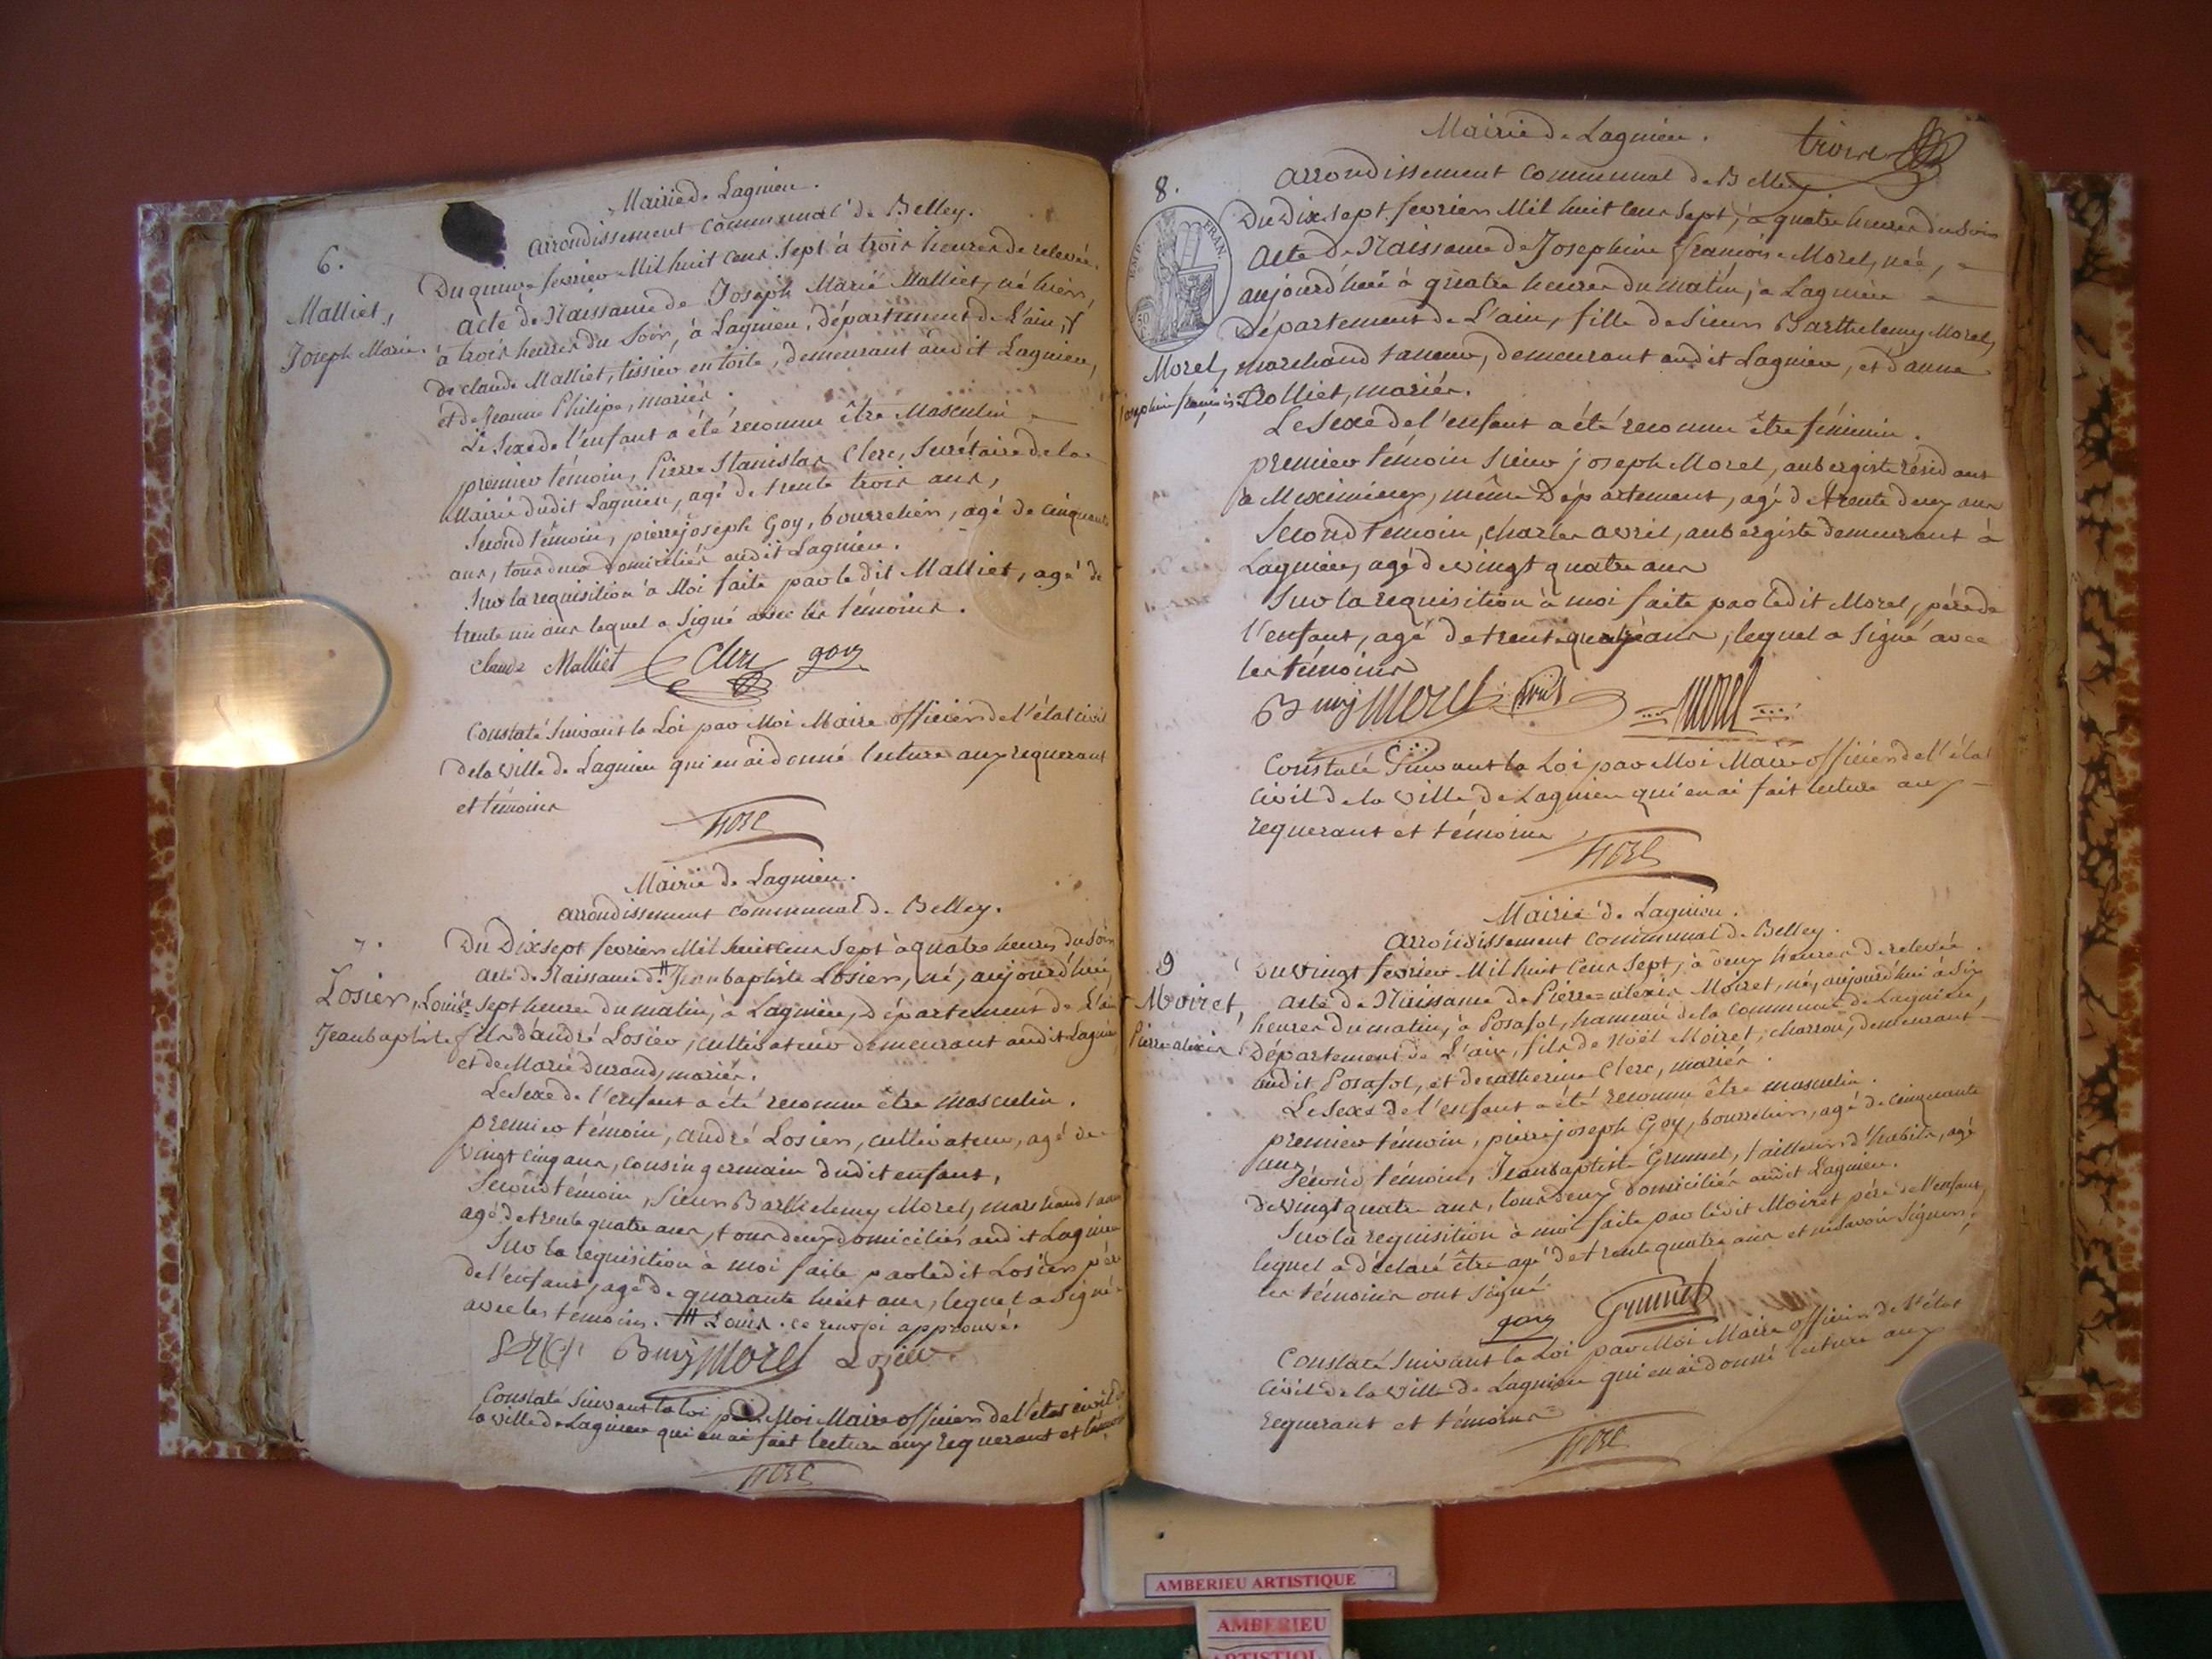 Mairie de Lagnieu.
arrondissement communal de Belley.
6.
Du quinze fevrier Mil huit cens sept à trois heures de relevée.
acte de Naissance de Joseph Marie Malliet, né hier,
Malliet,
Joseph Marie.
à trois heures du soir, à Lagnieu, département de L'ain, f
de claude Malliet, tissier en toile, demeurant audit Lagnieu,
et de Jeanne Philipe, mariés.
Le sexe de l'enfant a été reconnu être Masculin
premier témoin, Pierre Stanislas Clerc, Secrétaire de la
Mairie dudit Lagnieu, agé de trente trois ans,
Second témoin, pierre joseph Goy, bourrelier, agé de cinquante
ans, tous deux domiciliés audit Lagnieu.
Sur la requisition à Moi faite par le dit Malliet, agé de
trente un ans lequel a signé avec les témoins.
claude Malliet Clerc goy
Constaté suivant la Loi par Moi Maire officier de l'état civil
de la ville de Lagnieu qui en ai donné lecture aux requerant
et témoins
Mairie de Lagnieu.
arrondissement communal de Belley.
7.
Du Dix sept fevrier Mil huit cens sept à quatre heures du soir
acte de Naissance de # Jean baptiste Losier, né, aujourd'hui,
Losier, Louis
Jean baptiste
à sept heures du matin, à Lagnieu, département de L'ain
fils d'andré Losier, cultivateur demeurant audit Lagnieu
et de Marie Durand, mariés.
Le sexe de l'enfant a été reconnu être masculin.
premier témoin, andré Losier, cultivateur, agé de
vingt cinq ans, cousin germain dudit enfant,
Second témoin, sieur Barthelemy Morel, marchand tann
agé de trente quatre ans, tous deux domiciliés audit Lagnieu
Sur la requisition à moi faite par ledit Losier père
de l'enfant, agé de quarante huit ans, lequel a signé
avec les témoins. # Louis. ce renvoi approuvé.
Bmy Morel Lozier
Constaté suivant la loi par Moi Maire officier de l'état civil de
la ville de Lagnieu qui en ai fait lecture aux requerant et témoins
Mairie de Lagnieu.
arrondissement communal de Belley
8.
EMP. FRAN.
Du Dix sept fevrier Mil huit cens sept, à quatre heures du soir
acte de Naissance de Josephine françoise Morel, née,
aujourd'hui à quatre heures du matin, à Lagnieu
Département de L'ain, fille de sieur Barthelemy Morel,
Morel,
Josephine françoise
marchand tanneur, demeurant audit Lagnieu, et d'anne
Trolliet, mariés.
Le sexe de l'enfant a été reconnu être féminin.
premier témoin sieur joseph Morel, aubergiste résidant
à Meximieux, même Département, agé de trente deux ans
Second témoin, charles avril, aubergiste demeurant à
Lagnieu, agé de vingt quatre ans
Sur la requisition à moi faite par ledit Morel, père de
l'enfant, agé de trente quatre ans, lequel a signé avec
les témoins
Bmy Morel avril Morel
Constaté suivant la Loi par Moi Maire officier de l'état
civil de la ville de Lagnieu qui en ai fait lecture aux
requerant et témoins
Mairie de Lagnieu.
arrondissement communal de Belley.
9
Du vingt fevrier Mil huit cens sept, à deux heures de relevée.
acte de Naissance de Pierre=alexis Moiret, né, aujourd'hui à six
Moiret,
Pierre=alexis
heures du matin, à Posafol, hameau de la commune de Lagnieu,
Département de L'ain, fils de Noël Moiret, charron, demeurant
audit Posafol, et de catherine Clerc, mariés.
Le sexe de l'enfant a été reconnu être masculin.
premier témoin, pierre joseph Goy, bourrelier, agé de cinquante
ans
Second témoin, Jean baptiste Grumel, tailleur d'habits, agé
de vingt quatre ans, tous deux domiciliés audit Lagnieu.
Sur la requisition à moi faite par ledit Moiret père de l'enfant,
lequel a déclaré être agé de trente quatre ans et ne savoir signer,
les témoins ont signé
goy Grumel
Constaté suivant la Loi par Moi Maire officier de l'état
civil de la ville de Lagnieu qui en ai donné lecture aux
requerant et témoins
AMBERIEU ARTISTIQUE
AMBERIEU